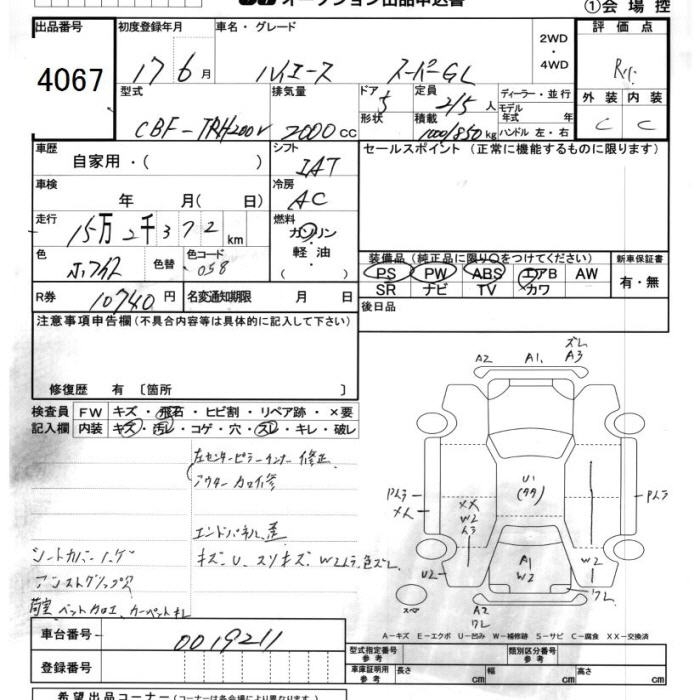 オークション出品申込書
①会場控
出品番号 初度登録年月 車名・グレード 評価点
4067
17年6月 ハイエース スーパーGL 2WD・4WD R
型式 排気量 ドア 定員 ディーラー・並行 外装 内装
CBF-TRH200V 2000cc 5 2/5人 モデル年式 年 C C
形状 積載 1000/850kg ハンドル 左・右
車歴 シフト セールスポイント(正常に機能するものに限ります)
自家用・( ) IAT
車検 冷房
年 月( 日) AC
走行 燃料
15万2千372km ガソリン・軽油・( )
色 色替 色コード 装備品(純正品に限り○をつけてください) 新車保証書
058 PS PW ABS エアB AW 有・無
SR ナビ TV カワ
R券 10740円 名変通知期限 月 日 後日品
注意事項申告欄(不具合内容等は具体的に記入して下さい)
修復歴 有〔箇所 〕
検査員 FW キズ・飛石・ヒビ割・リペア跡・×要
記入欄 内装 キズ・汚レ・コゲ・穴・スレ・キレ・破レ
左センターピラーインナー修正
アウター
エンドパネル歪
キズ、U、スリキズ、W2ムラ、色ズレ
シートカバー ハゲ
荷室 ベットカロエ、カーペットキレ
A2 A1. ズレ A3
U1
Pムラ
メん
XX
W2
W2
Pムラ
U2
A1
W2
ワレ
A2
ワレ
スペア
A-キズ E-エクボ U-凹み W-補修跡 S-サビ C-腐食 XX-交換済
車台番号 0019211
型式指定番号 参考 類別区分番号 参考
登録番号 車庫証明用 参考 長さ cm 幅 cm 高さ cm
希望出品コーナー(コーナーは各会場により異なります)